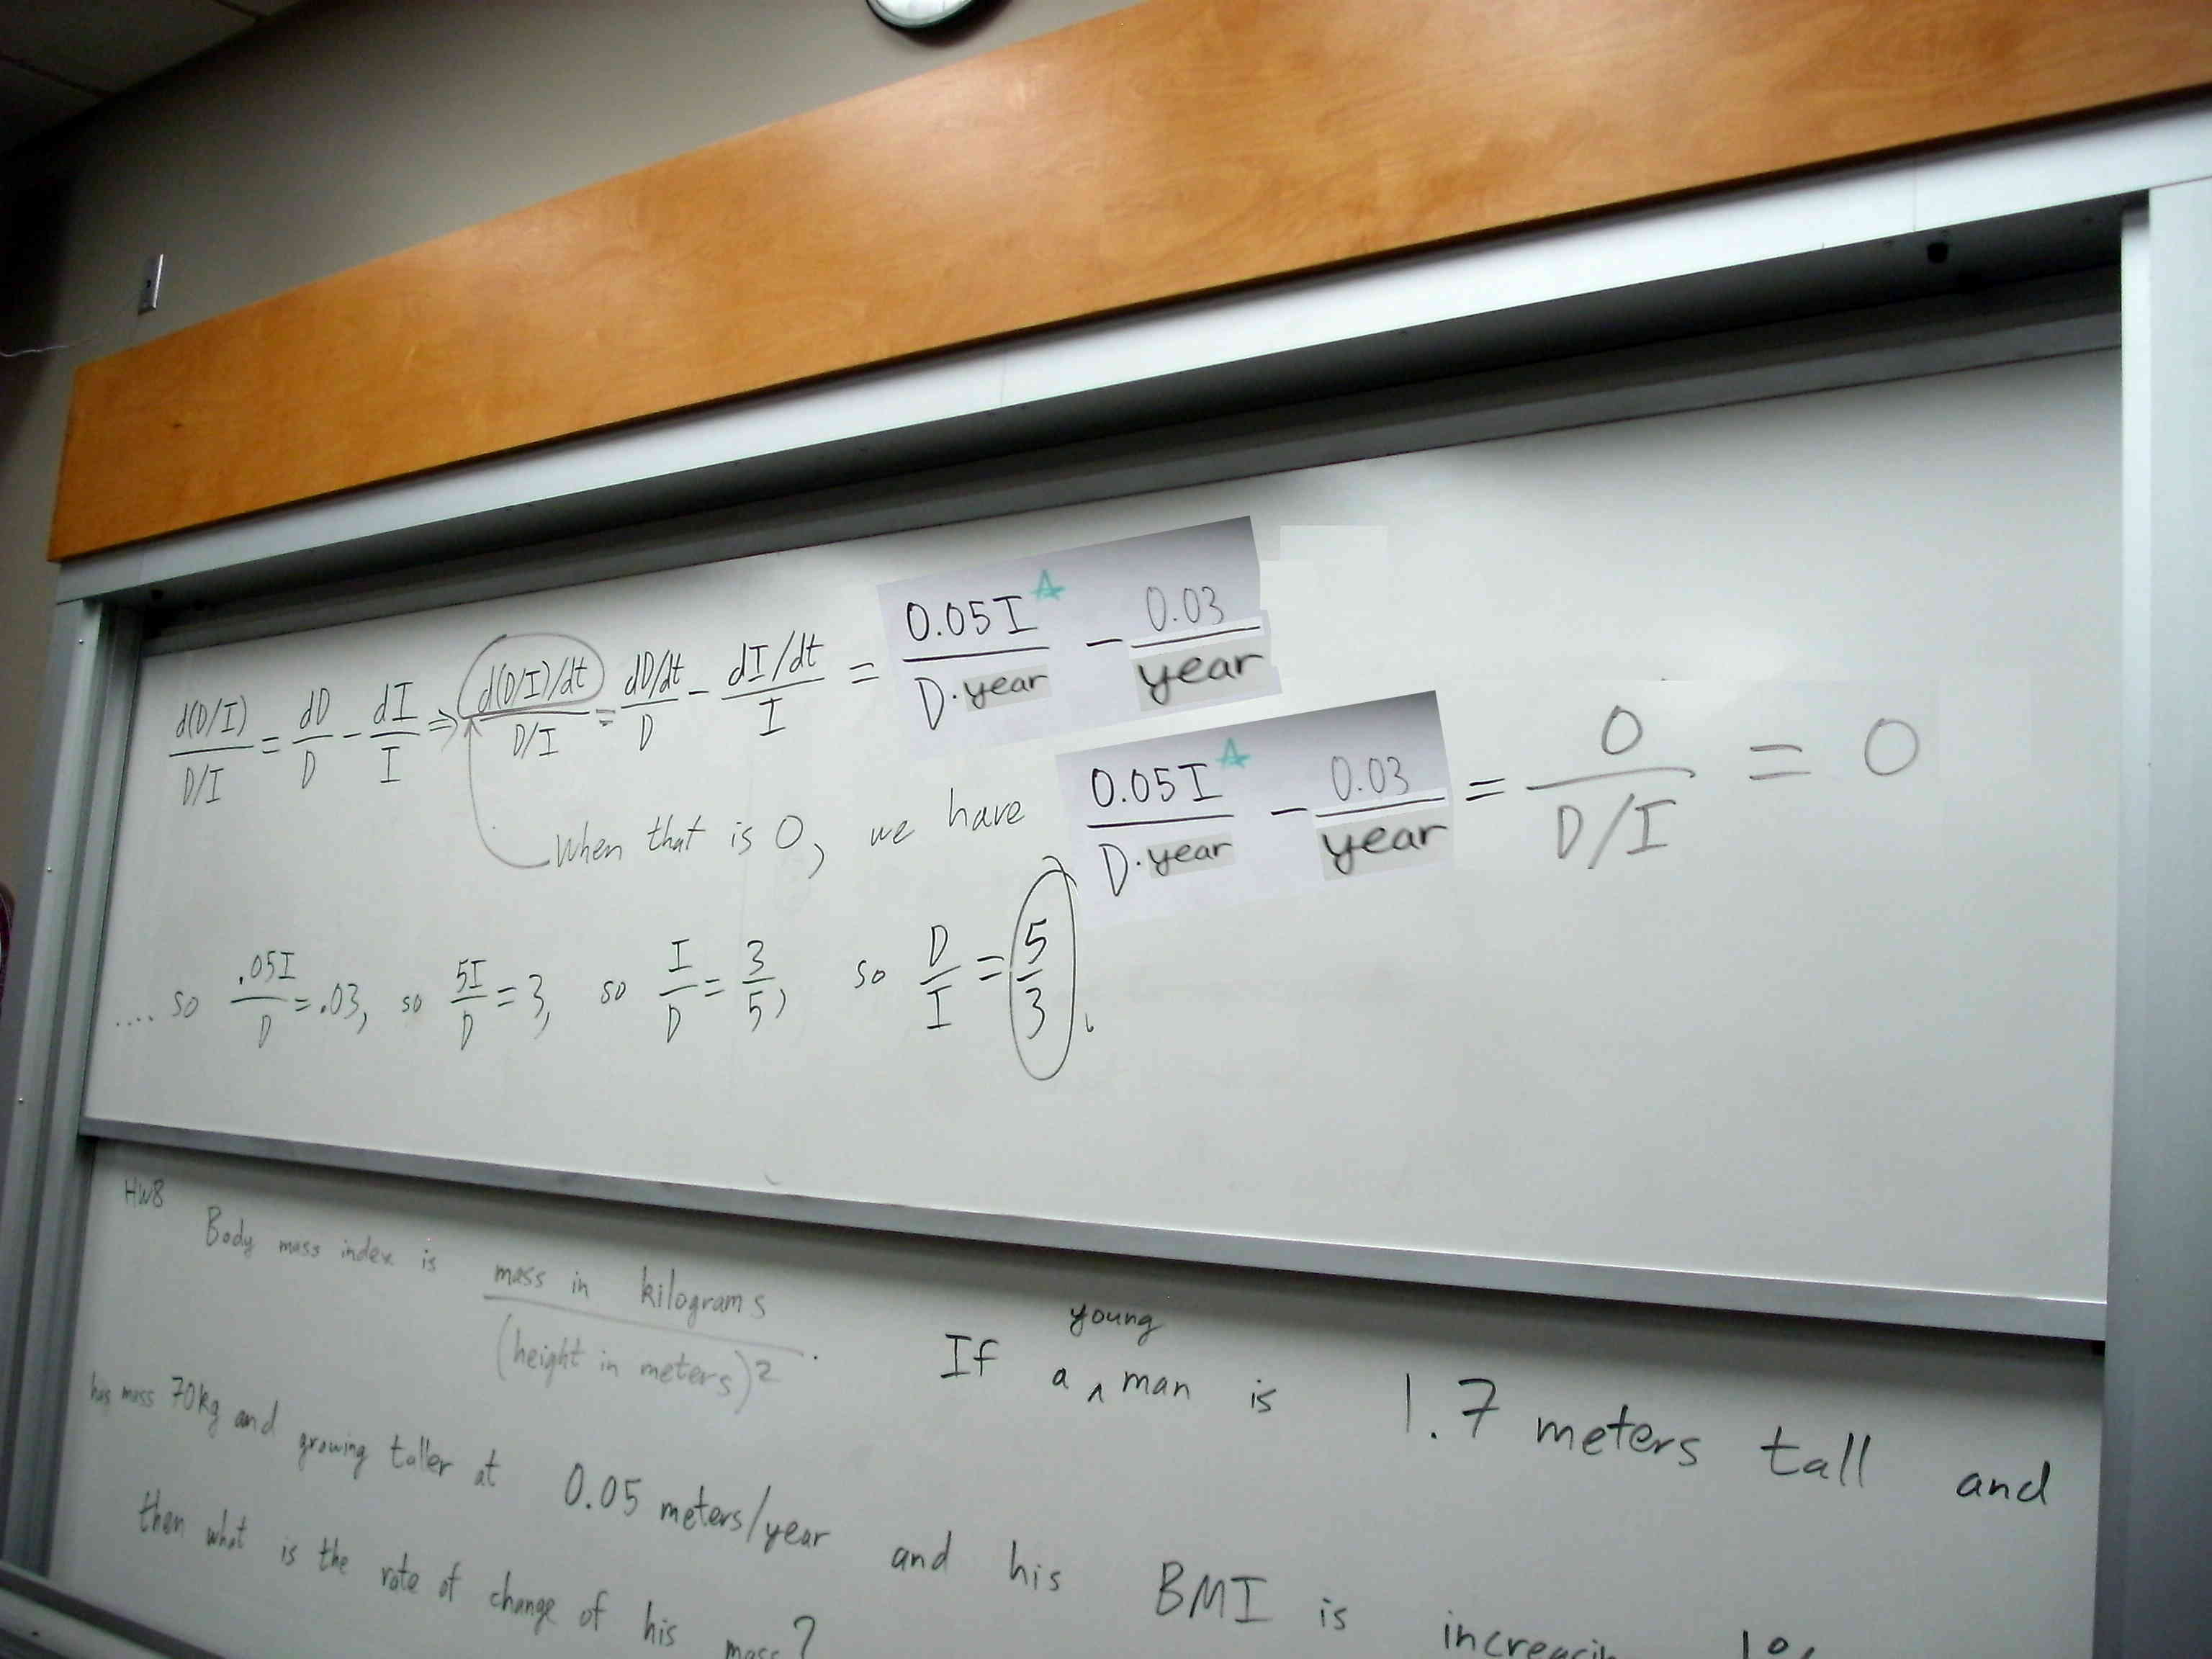 d(D/I)/(D/I) = dD/D - dI/I ⇒ (d(D/I)/dt)/(D/I) = (dD/dt)/D - (dI/dt)/I = 0.05I^A/(D·year) - 0.03/year
When that is 0, we have 0.05I^A/(D·year) - 0.03/year = 0/(D/I) = 0
.... so .05I/D = .03, so 5I/D = 3, so I/D = 3/5, so D/I = 5/3.
HW8 Body mass index is mass in kilograms/(height in meters)^2. If a ^ young man is 1.7 meters tall and
has mass 70kg and growing taller at 0.05 meters/year and his BMI is
then what is the rate of change of his mass?